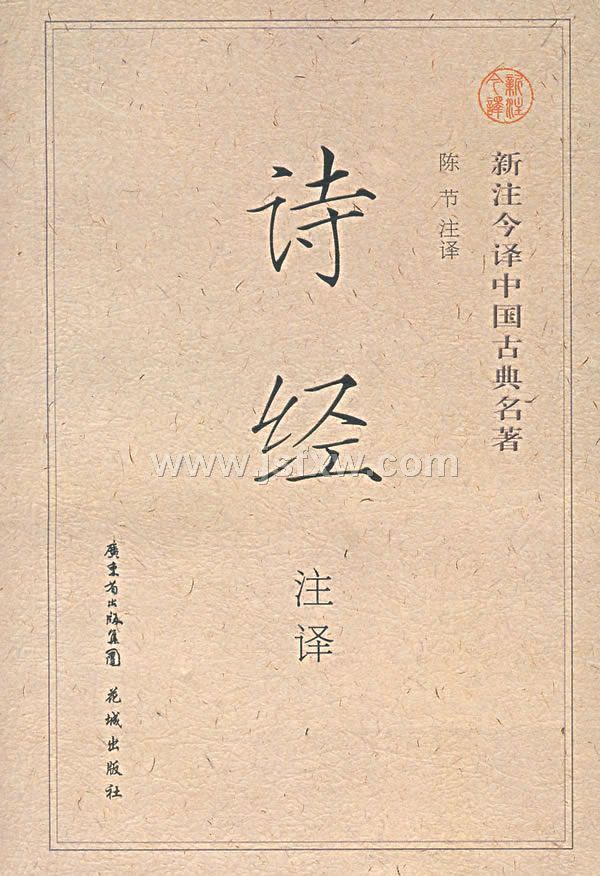 新注今譯
新注今译中国古典名著
陈节注译
诗经
注译
www.jsfxw.com
廣東省出版集團
花城出版社